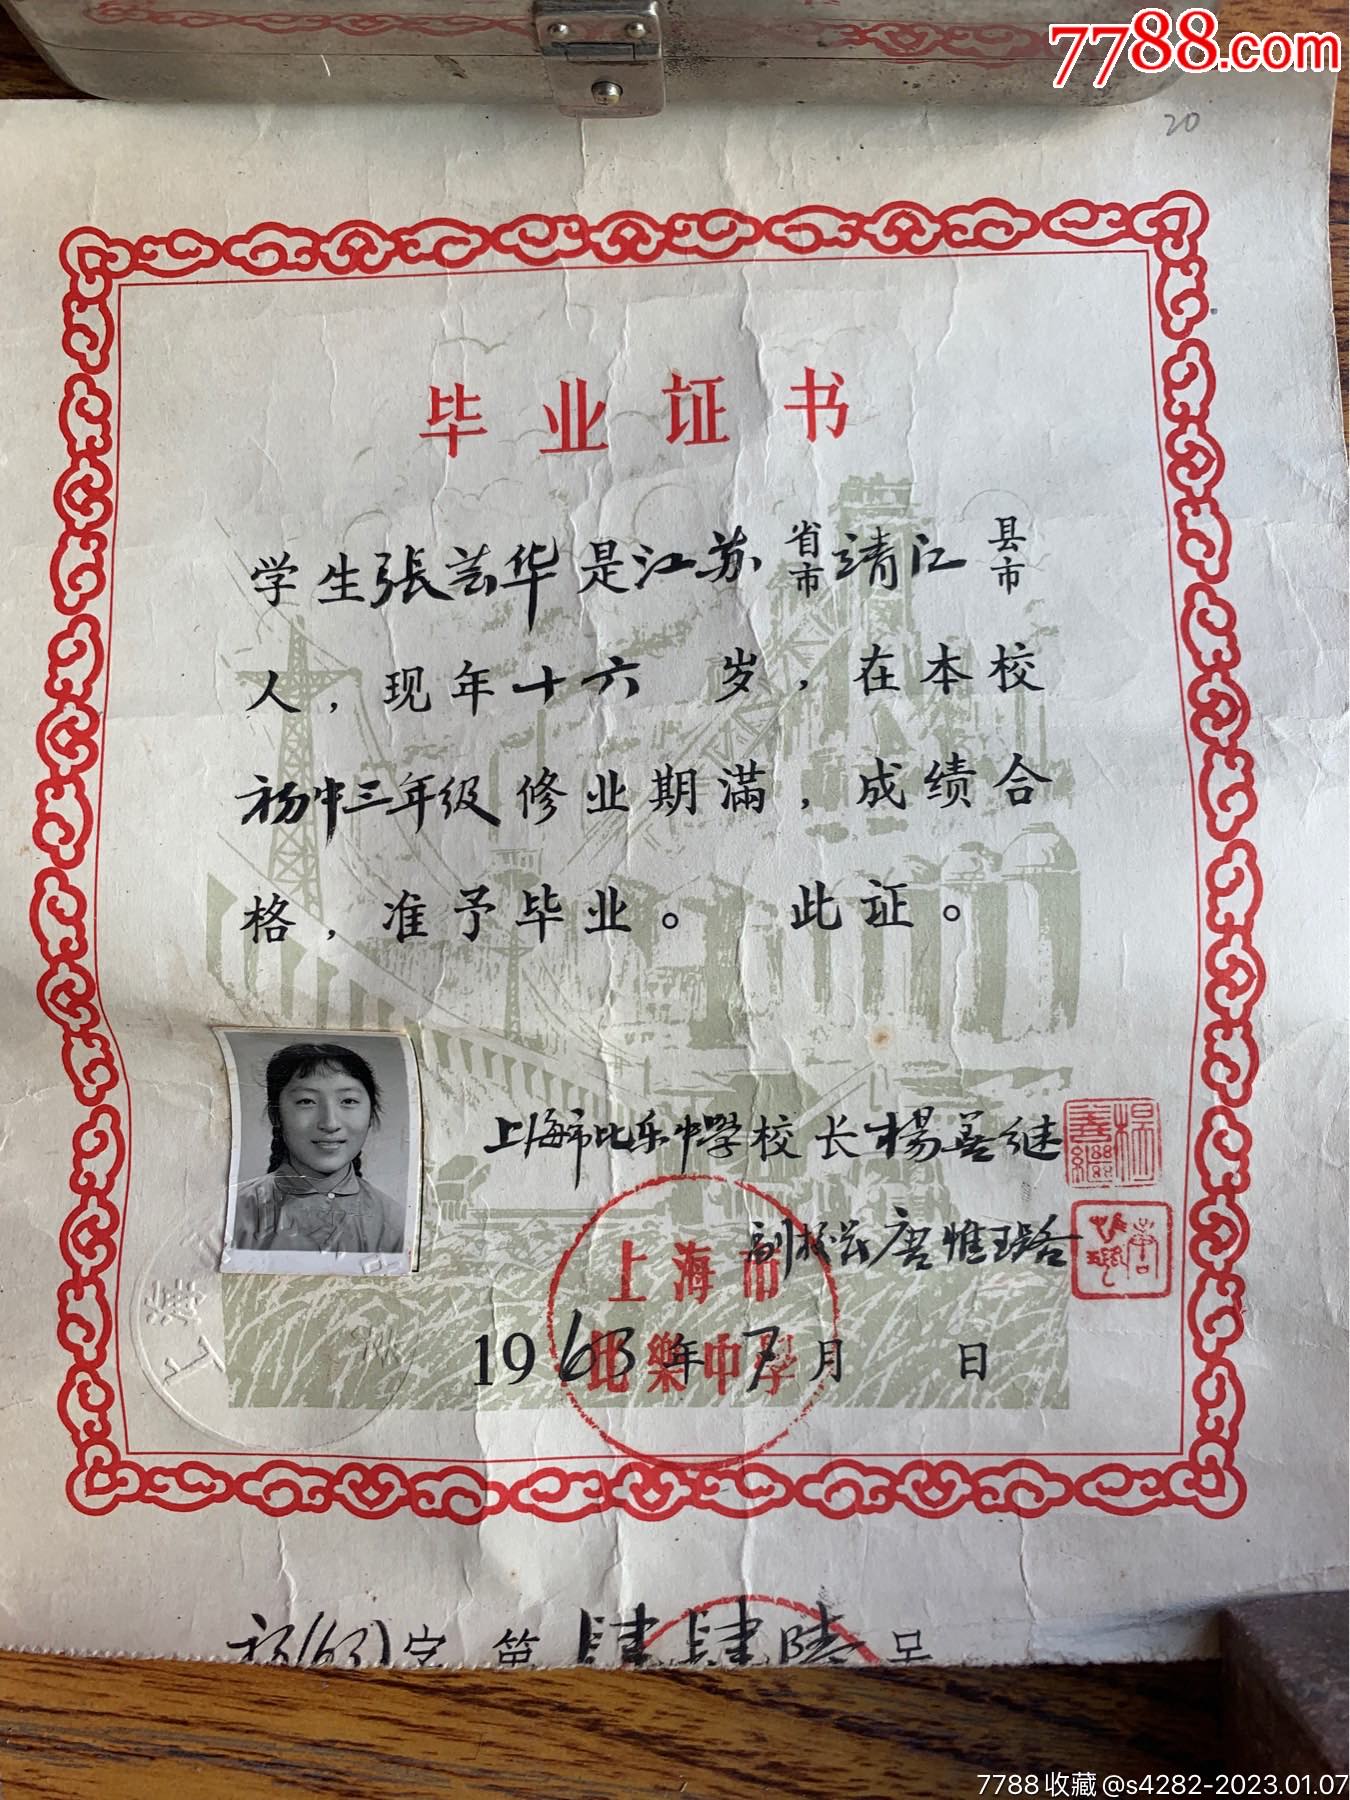 7788.com
20
毕业证书
学生張芸华是江苏省市清江县市
人，现年十六 岁，在本校
初中三年级修业期滿，成绩合
格，准予毕业。 此证。
上海市比乐中學校长楊善继
楊善繼
副校长唐惟璐
上海市
比樂中學
1963年7月 日
上海
初(63)字第肆肆陆号
7788收藏@s4282-2023.01.07